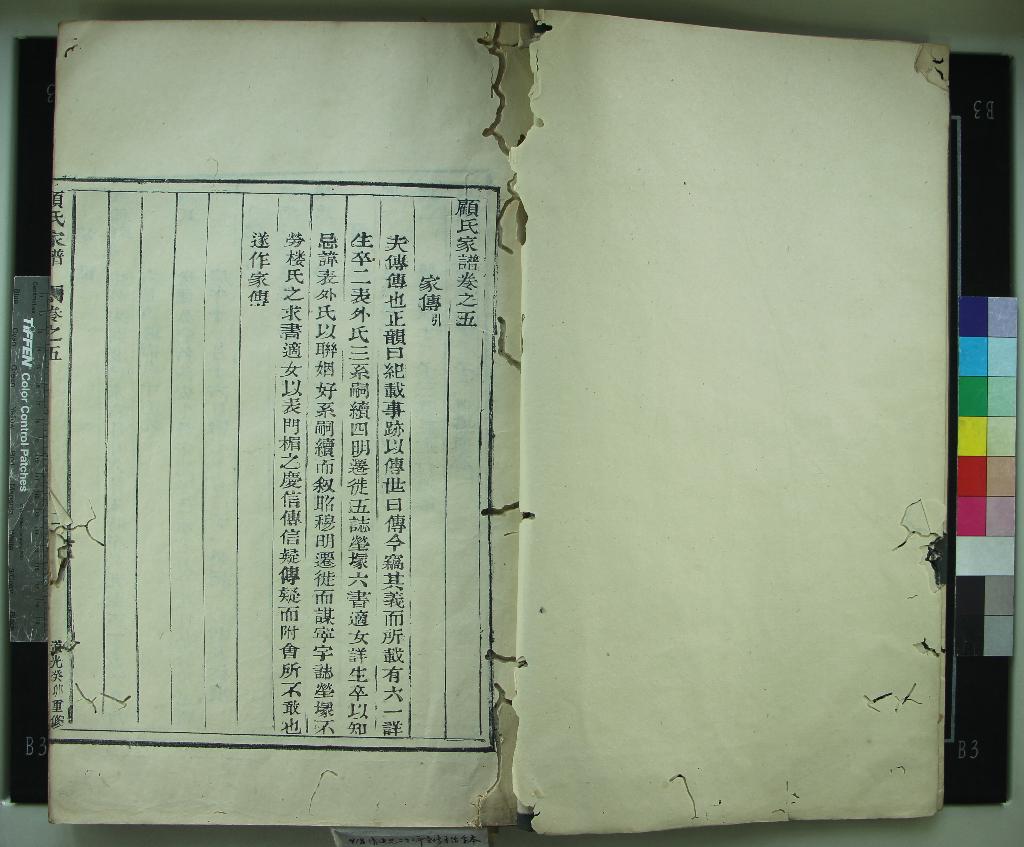 顧氏家譜卷之五
家傳引
夫傳傳也正韻曰紀載事跡以傳世曰傳今竊其義而所載有六一詳
生卒二表外氏三系嗣續四明遷徙五誌塋塚六書適女詳生卒以知
忌諱表外氏以聯姻好系嗣續而叙昭穆明遷徙而謀寧宇誌塋塚不
勞楼氏之求書適女以表門楣之慶信傳信疑傳疑而附會所不敢也
遂作家傳
顧氏家譜 卷之五
道光癸卯重修
TIFFEN Color Control Patches
B3
B3
B3
B3